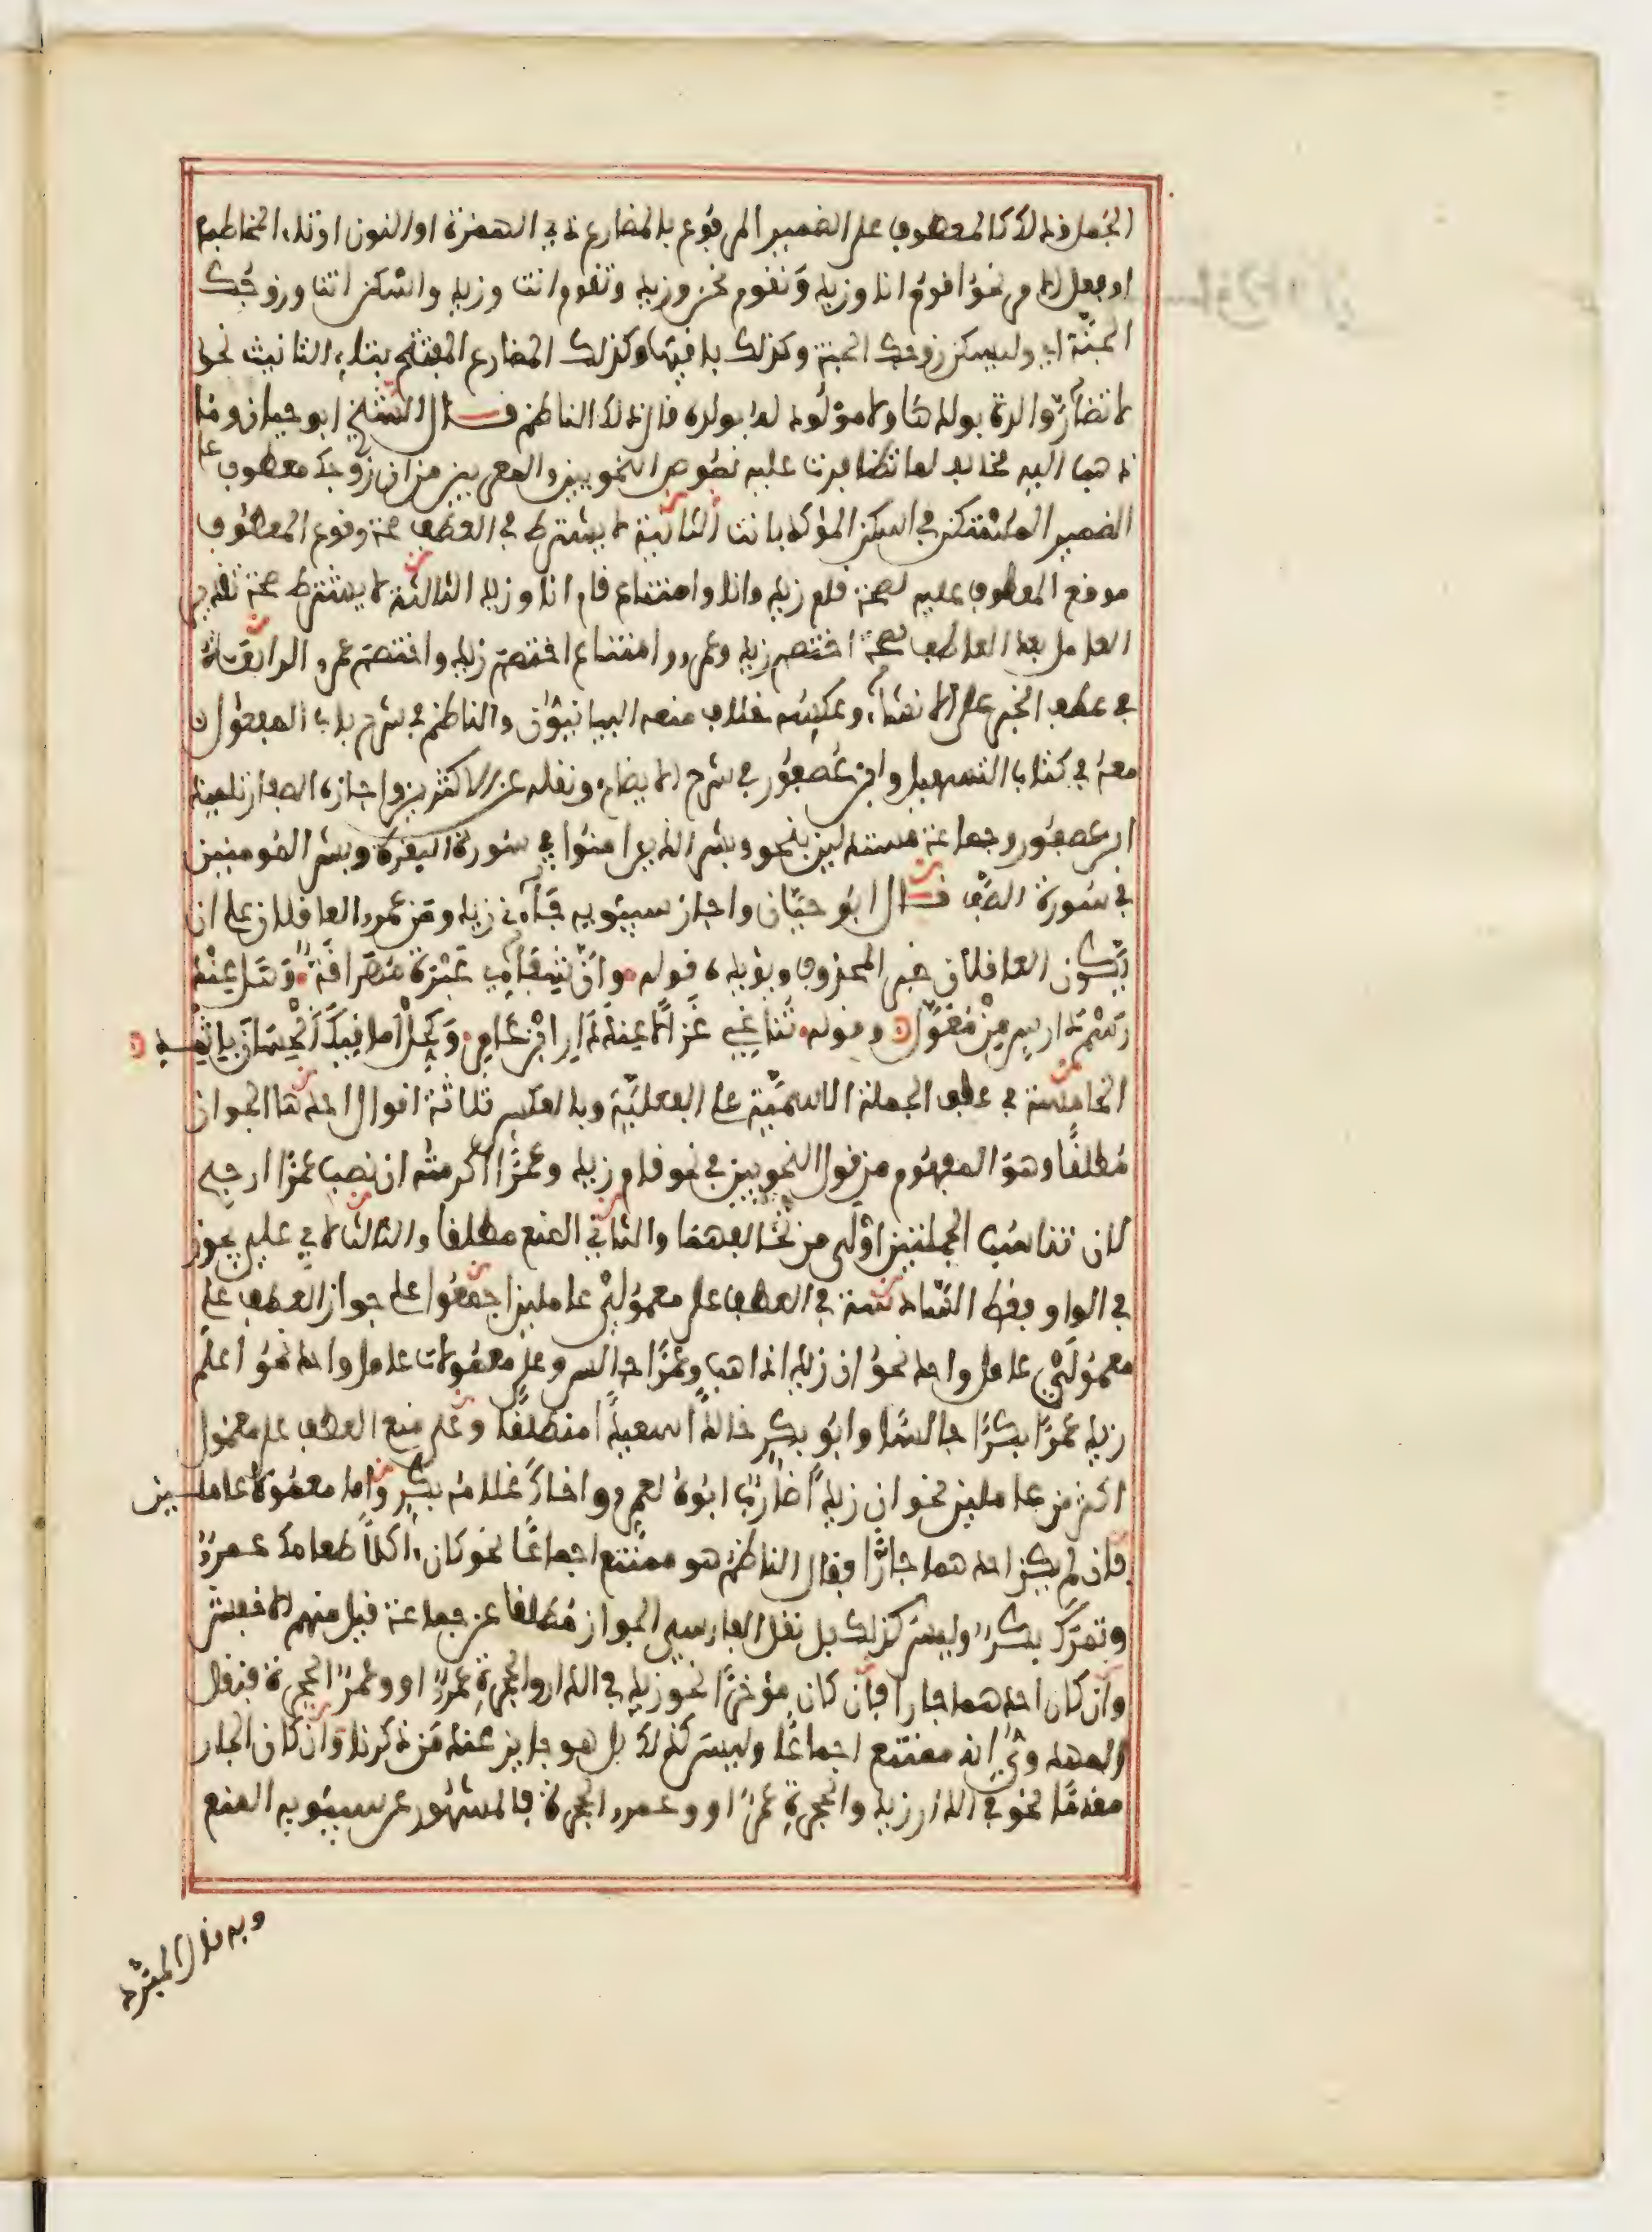 الجمل وذلك كالمعطوف على الضمير المرفوع بالمضارع ذي الهمزة او النون او تاء المخاطب
او بفعل الامر نحو اقوم انا وزيد ونقوم نحن وزيد وتقوم انت وزيد واسكن انت وزوجك
الجنة اي وليسكن زوجك الجنة وكذلك باقيها وكذلك المضارع المفتتح بتاء التانيث نحو
لا تضار والدة بولدها ولا مولود له بولده قال ذلك الناظم قال الشيخ ابو حيان وما
ذهب اليه مخالف لما تظافرت عليه نصوص النحويين والمعربين من ان زوجك معطوف على
الضمير المستكن في اسكن المؤكد بانت الثانية لا يشترط في العطف صحة وقوع المعطوف
موقع المعطوف عليه لصحة قام زيد وانا وامتناع قام انا وزيد الثالثة لا يشترط صحة تقدير
العامل بعد العاطف لصحة اختصم زيد وعمرو وامتناع اختصم زيد واختصم عمرو الرابعة
في عطف الخبر على الانشاء وعكسه خلاف منعه البيانيون والناظم في شرح باب المفعول
معه في كتاب التسهيل وابن عصفور في شرح الايضاح ونقله عن الاكثرين واجازه الصفار تلميذ
ابن عصفور وجماعة مستدلين بنحو وبشر الذين امنوا في سورة البقرة وبشر المومنين
في سورة الصف قال ابو حيان واجاز سيبويه جاءني زيد ومن عمرو العاقلان على ان
يكون العاقلان خبر المحذوف ويؤيده قوله وان شفائي عبرة مهراقة وهل عند
رسم دارس من معول وقوله تناغي غزالا عند دار ابن عامر وكحل اماقيك الحسان باثمد
الخامسة في عطف الجملة الاسمية على الفعلية وبالعكس ثلاثة اقوال احدها الجواز
مطلقا وهو المفهوم من قول النحويين في نحو قام زيد وعمرا اكرمته ان نصب عمرا ارجح
لان تناسب الجملتين اولى من تخالفهما والثاني المنع مطلقا والثالث لابي علي يجوز
في الواو فقط السادسة في العطف على معمولي عاملين اجمعوا على جواز العطف على
معمولي عامل واحد نحو ان زيدا ذاهب وعمرا جالس وعلى معمولات عامل واحد نحو اعلم
زيد عمرا بكرا جالسا وابو بكر خالدا سعيدا منطلقا وعلى منع العطف على معمول
اكثر من عاملين نحو ان زيدا ضارب ابوه لعمرو واخاك غلامه بكر واما معمولا عاملين
فان لم يكن احدهما جارا فقال الناظم هو ممتنع اجماعا نحو كان اكلا طعامك عمرو
وتمرك بكر وليس كذلك بل نقل الفارسي الجواز مطلقا عن جماعة قيل منهم الاخفش
وان كان احدهما جارا فان كان مؤخرا نحو زيد في الدار والحجرة عمرو او وعمرو الحجرة فنقل
المهدوي انه ممتنع اجماعا وليس كذلك بل هو جايز عند من ذكرنا وان كان الجار
مقدما نحو في الدار زيد والحجرة عمرو او وعمرو الحجرة فالمشهور عن سيبويه المنع
وبه قال المبرد